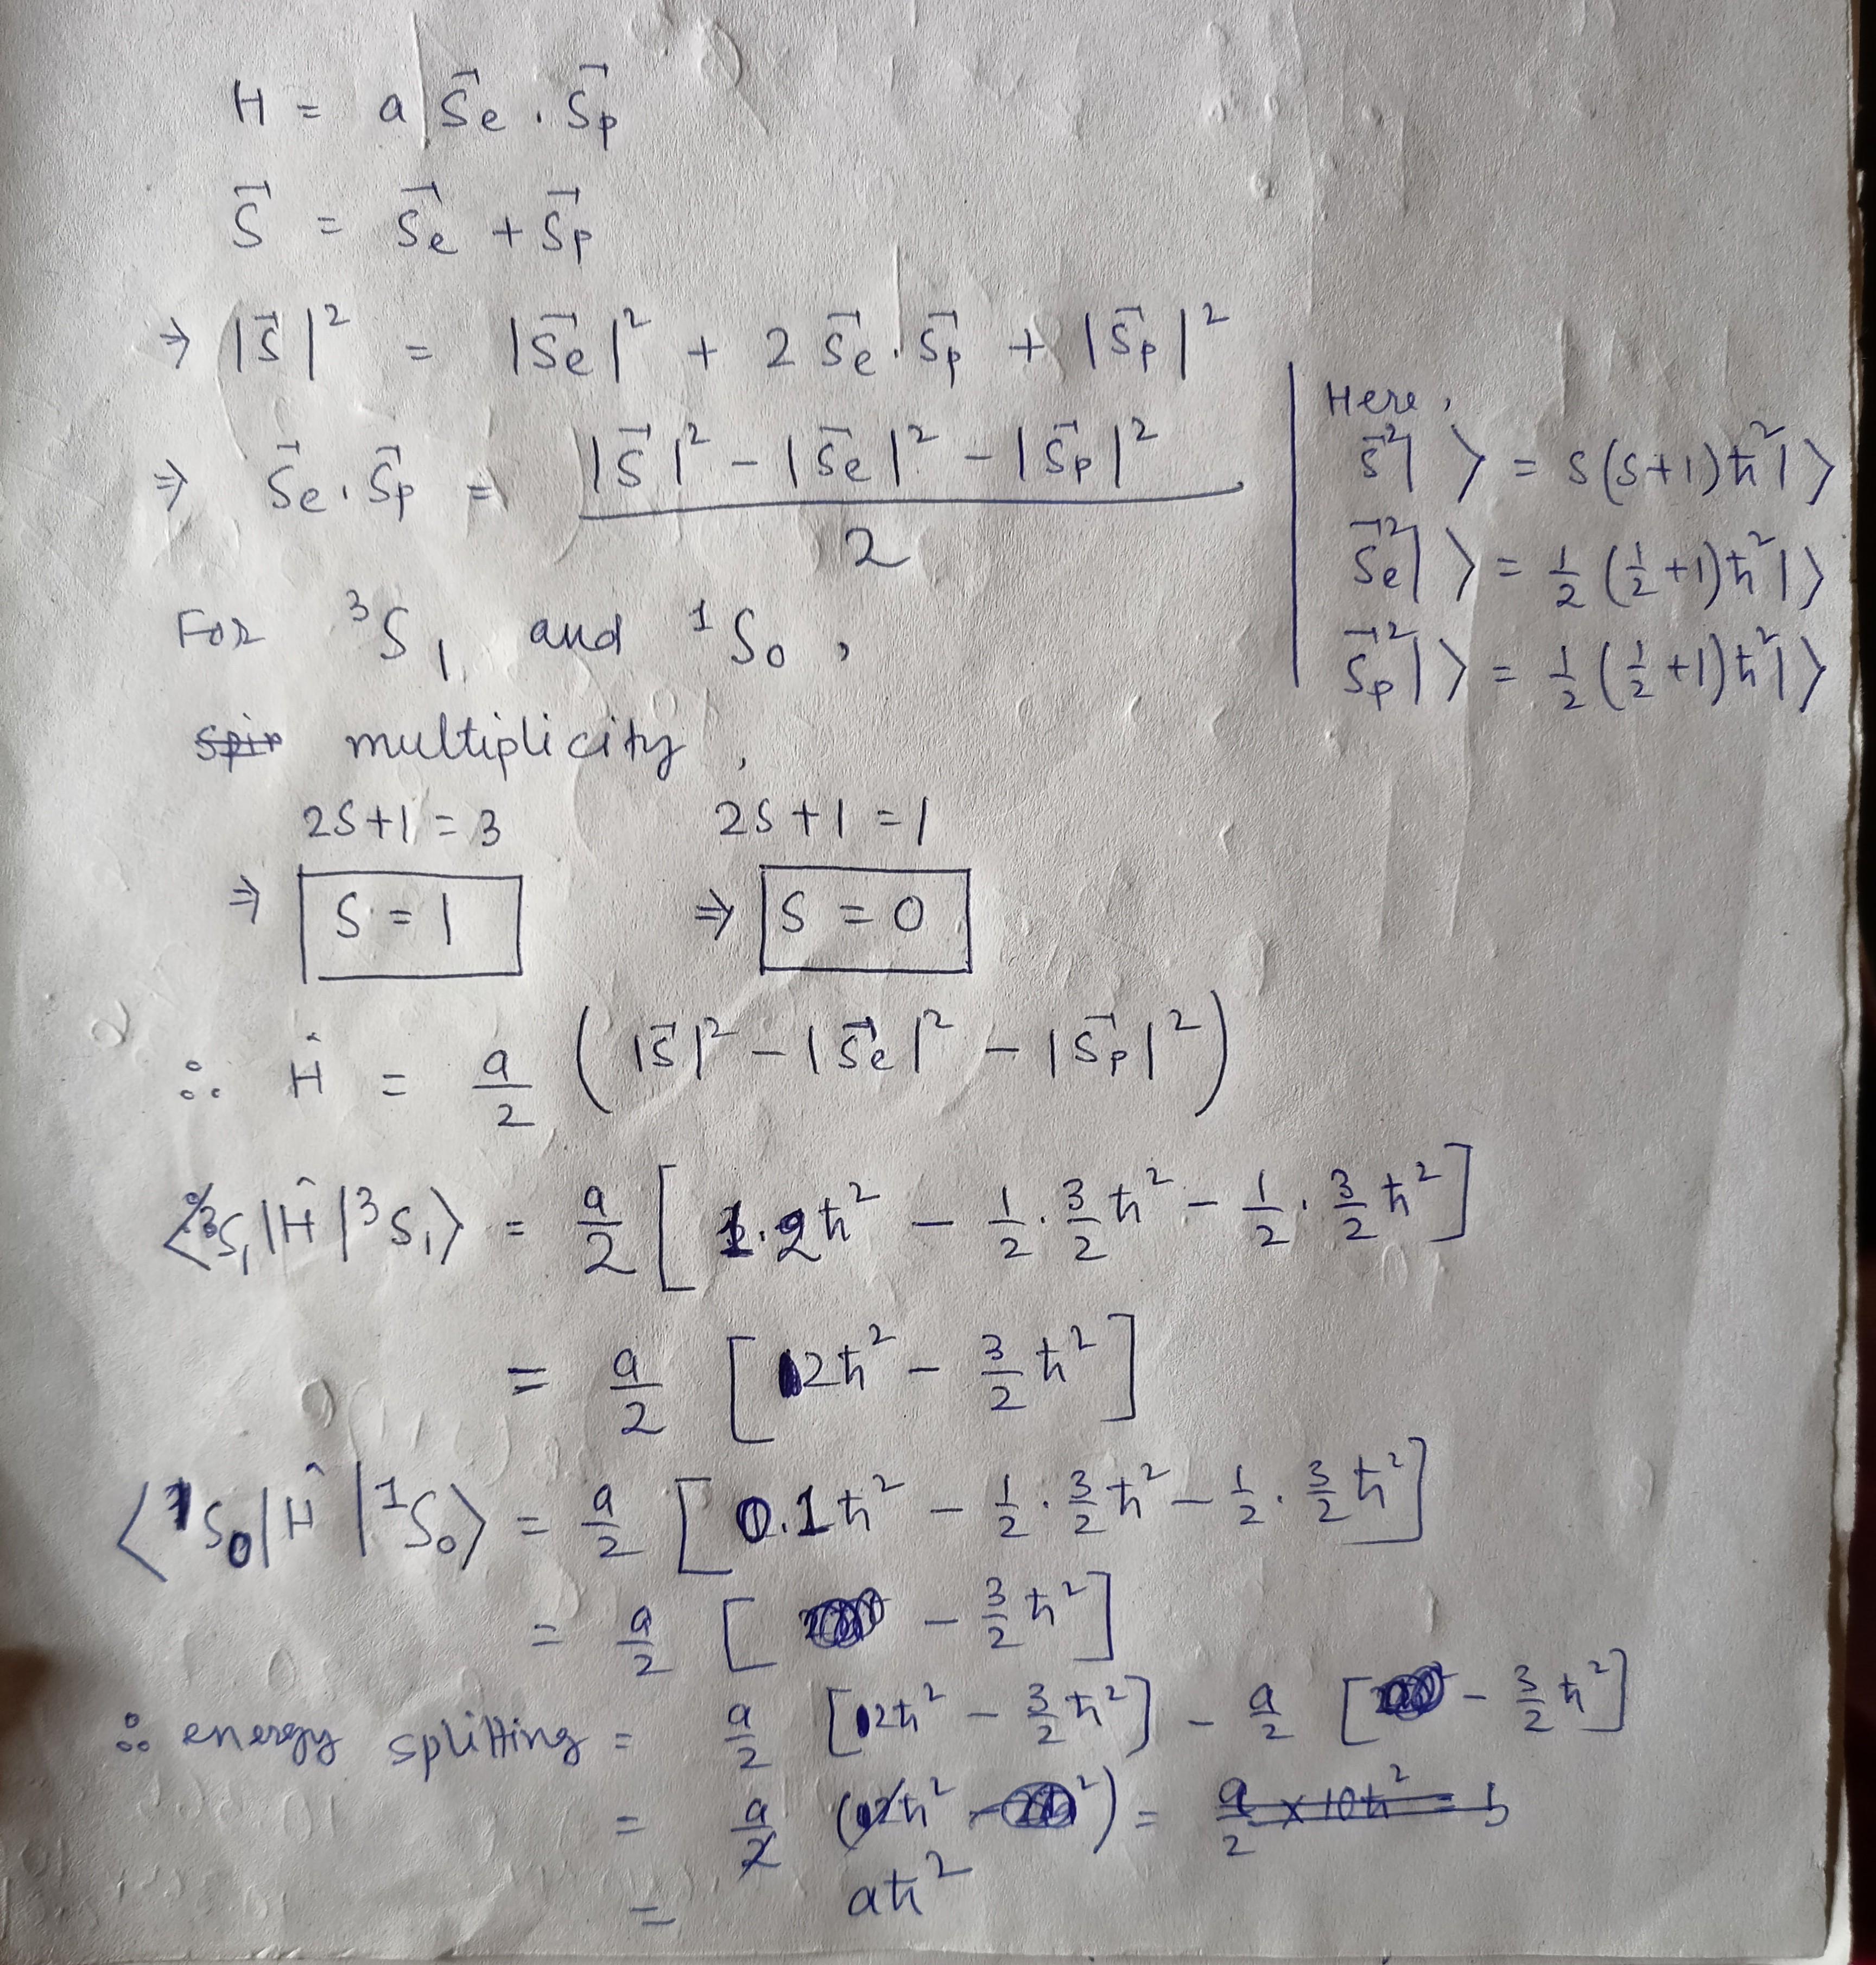 H = a S⃗e . S⃗p
S⃗ = S⃗e + S⃗p
⇒ |S⃗|² = |S⃗e|² + 2 S⃗e . S⃗p + |S⃗p|²
⇒ S⃗e . S⃗p = (|S⃗|² - |S⃗e|² - |S⃗p|²) / 2
Here,
S⃗²| ⟩ = s(s+1)ħ²| ⟩
S⃗e²| ⟩ = 1/2 (1/2 + 1)ħ²| ⟩
S⃗p²| ⟩ = 1/2 (1/2 + 1)ħ²| ⟩
For ³S₁ and ¹S₀,
multiplicity,
2S+1 = 3 2S+1 = 1
⇒ S = 1 ⇒ S = 0
∴ Ĥ = a/2 (|S⃗|² - |S⃗e|² - |S⃗p|²)
⟨³S₁|Ĥ|³S₁⟩ = a/2 [1.2ħ² - 1/2 . 3/2 ħ² - 1/2 . 3/2 ħ²]
= a/2 [2ħ² - 3/2 ħ²]
⟨¹S₀|Ĥ|¹S₀⟩ = a/2 [0.1ħ² - 1/2 . 3/2 ħ² - 1/2 . 3/2 ħ²]
= a/2 [ - 3/2 ħ²]
∴ energy splitting = a/2 [2ħ² - 3/2 ħ²] - a/2 [ - 3/2 ħ²]
= a/2 (2ħ²) =
= aħ²